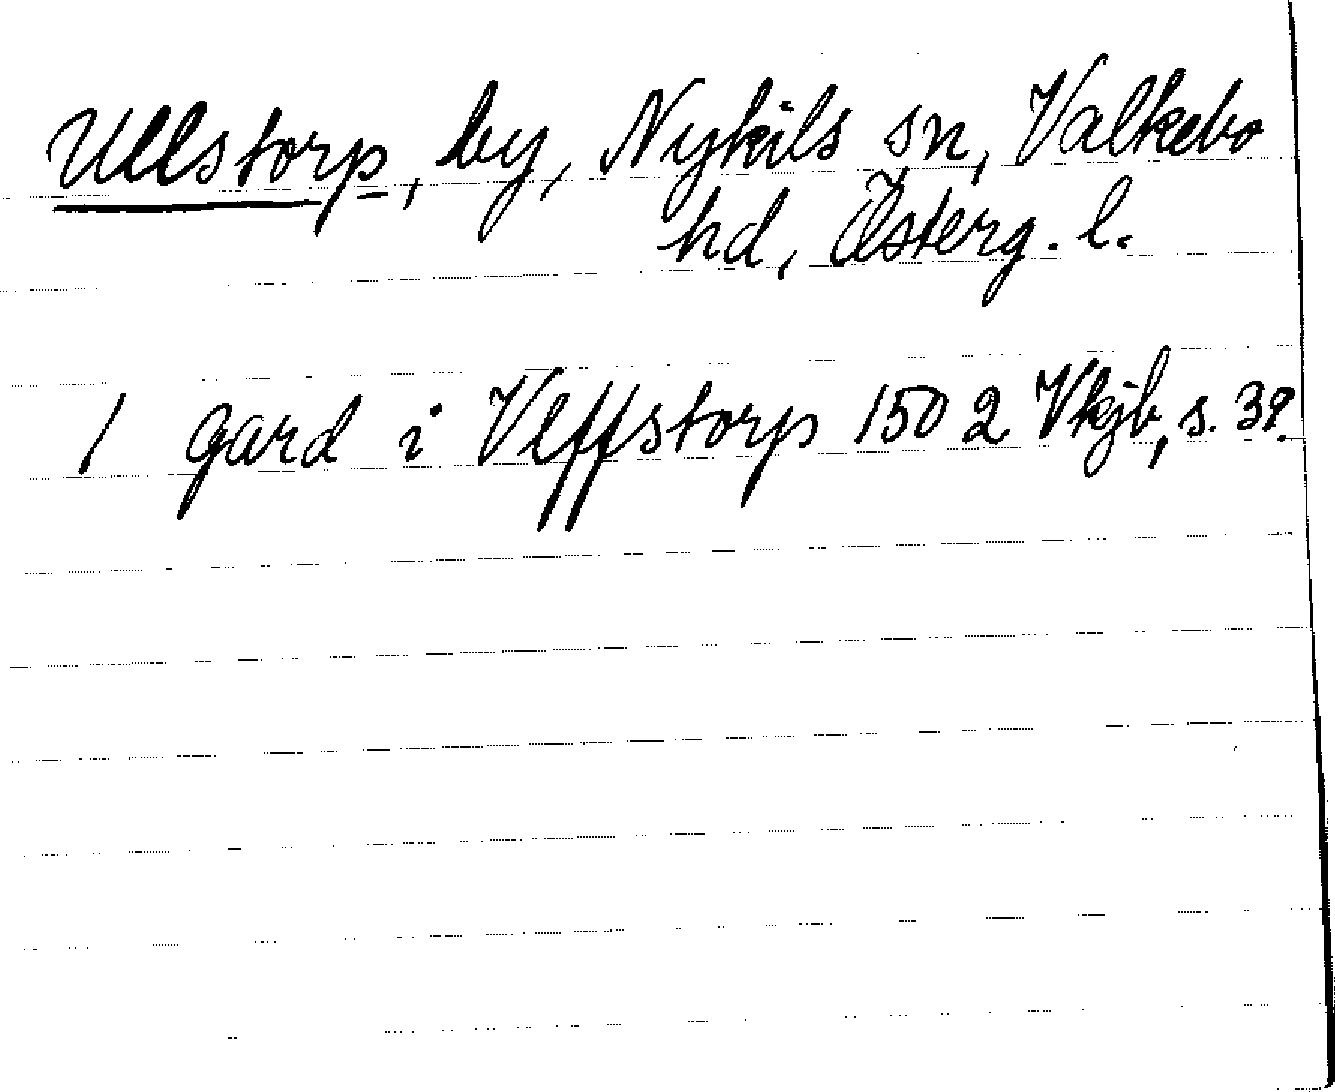 Ullstorp, by, Nykils sn, Valkebo
hd, Österg. l.
1 gard i Vlffstorp 1502 Vkjb, s. 39.